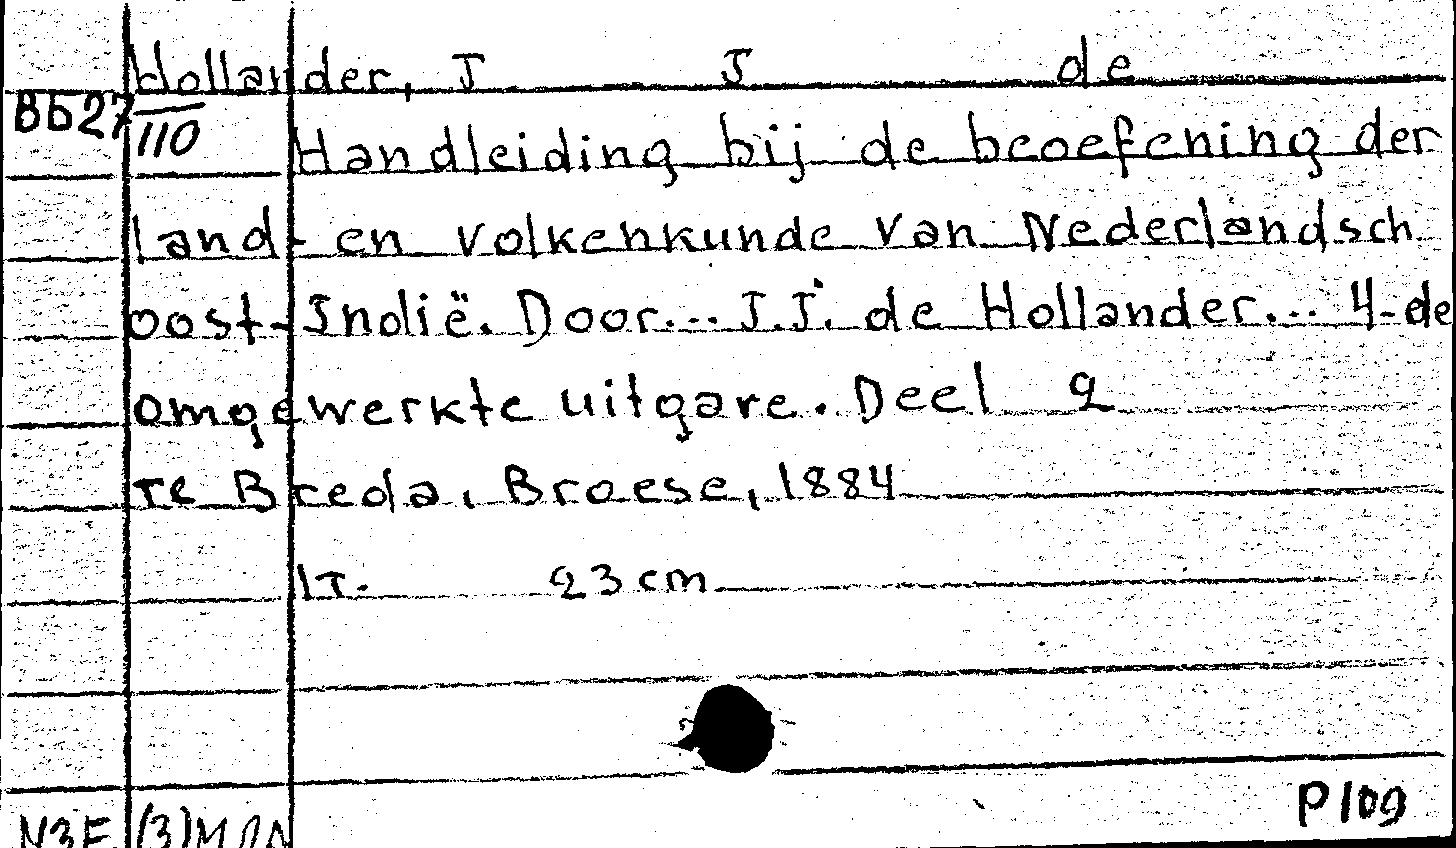 Hollander, J J de
8627/110
Handleiding bij de beoefening der
land- en volkenkunde van Nederlandsch
oost-Indië. Door... J.J. de Hollander... 4-de
omgewerkte uitgave. Deel 2
te Breda, Broese, 1884
1т. 23 cm
P109